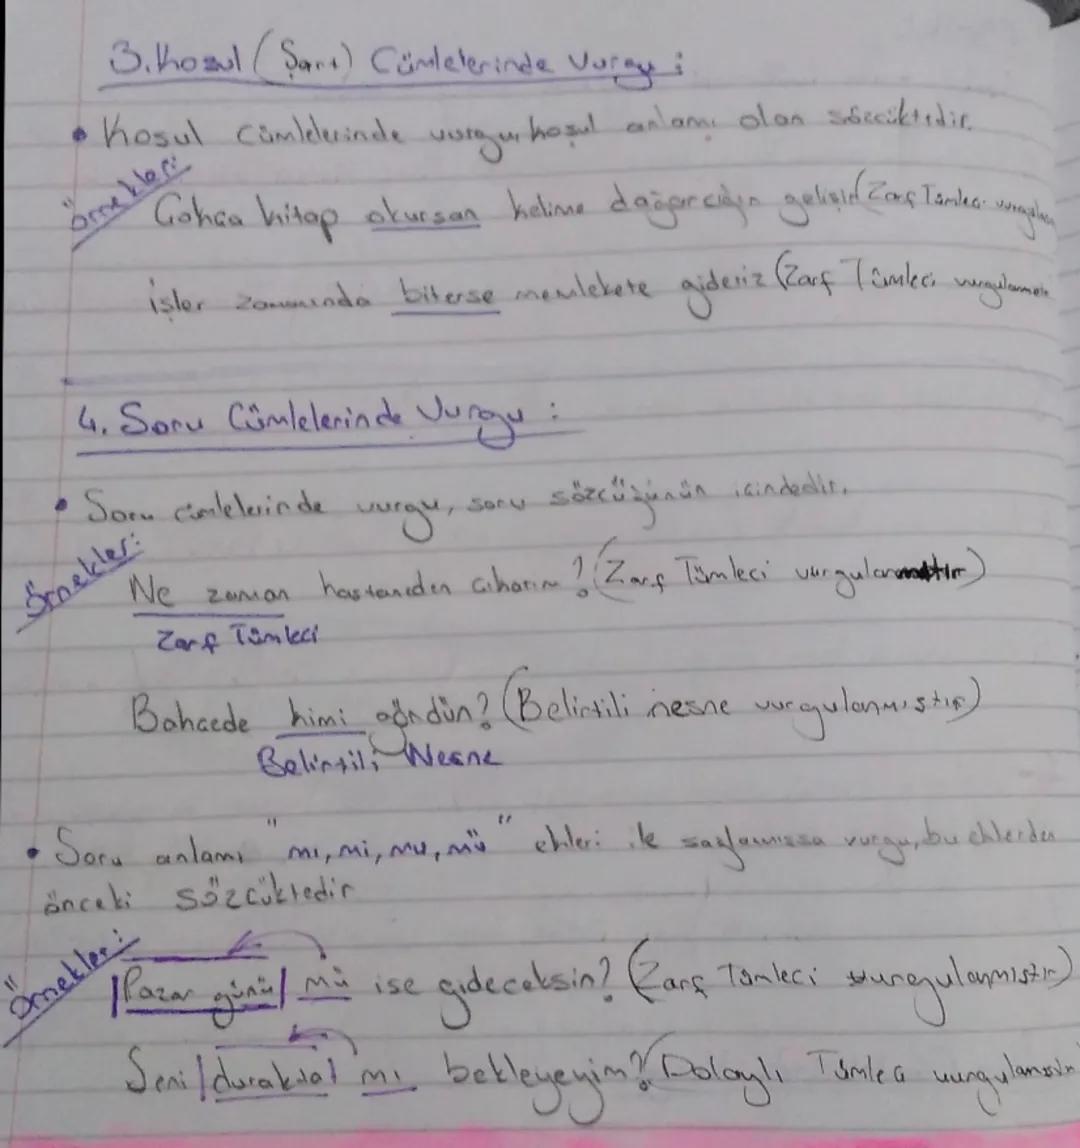 3. Koşul (Şart) Cümlelerinde Vurgu :
• Koşul cümlelerinde vurgu koşul anlamı olan sözcüktedir.
Örnekler:
Çokça kitap okursan kelime dağarcığın gelişir (Zarf Tümleci
İşler zamanında biterse memlekete gideriz (Zarf Tümleci
4. Soru Cümlelerinde Vurgu :
• Soru cümlelerinde vurgu, soru sözcüğünün içindedir.
Örnekler:
Ne zaman hastaneden çıkarım? (Zarf Tümleci
Zarf Tümleci
Bahçede kimi gördün? (Belirtili nesne vurgulanmıştır)
Belirtili Nesne
• Soru anlamı "mı, mi, mu, mü" ekleri ile sağlanmışsa vurgu, bu eklerden
önceki sözcüktedir
Örnekler:
|Pazar günü| mü işe gideceksin? (Zarf Tümleci vurgulanmıştır)
Seni |durakta| mı bekleyeyim? (Dolaylı Tümleç